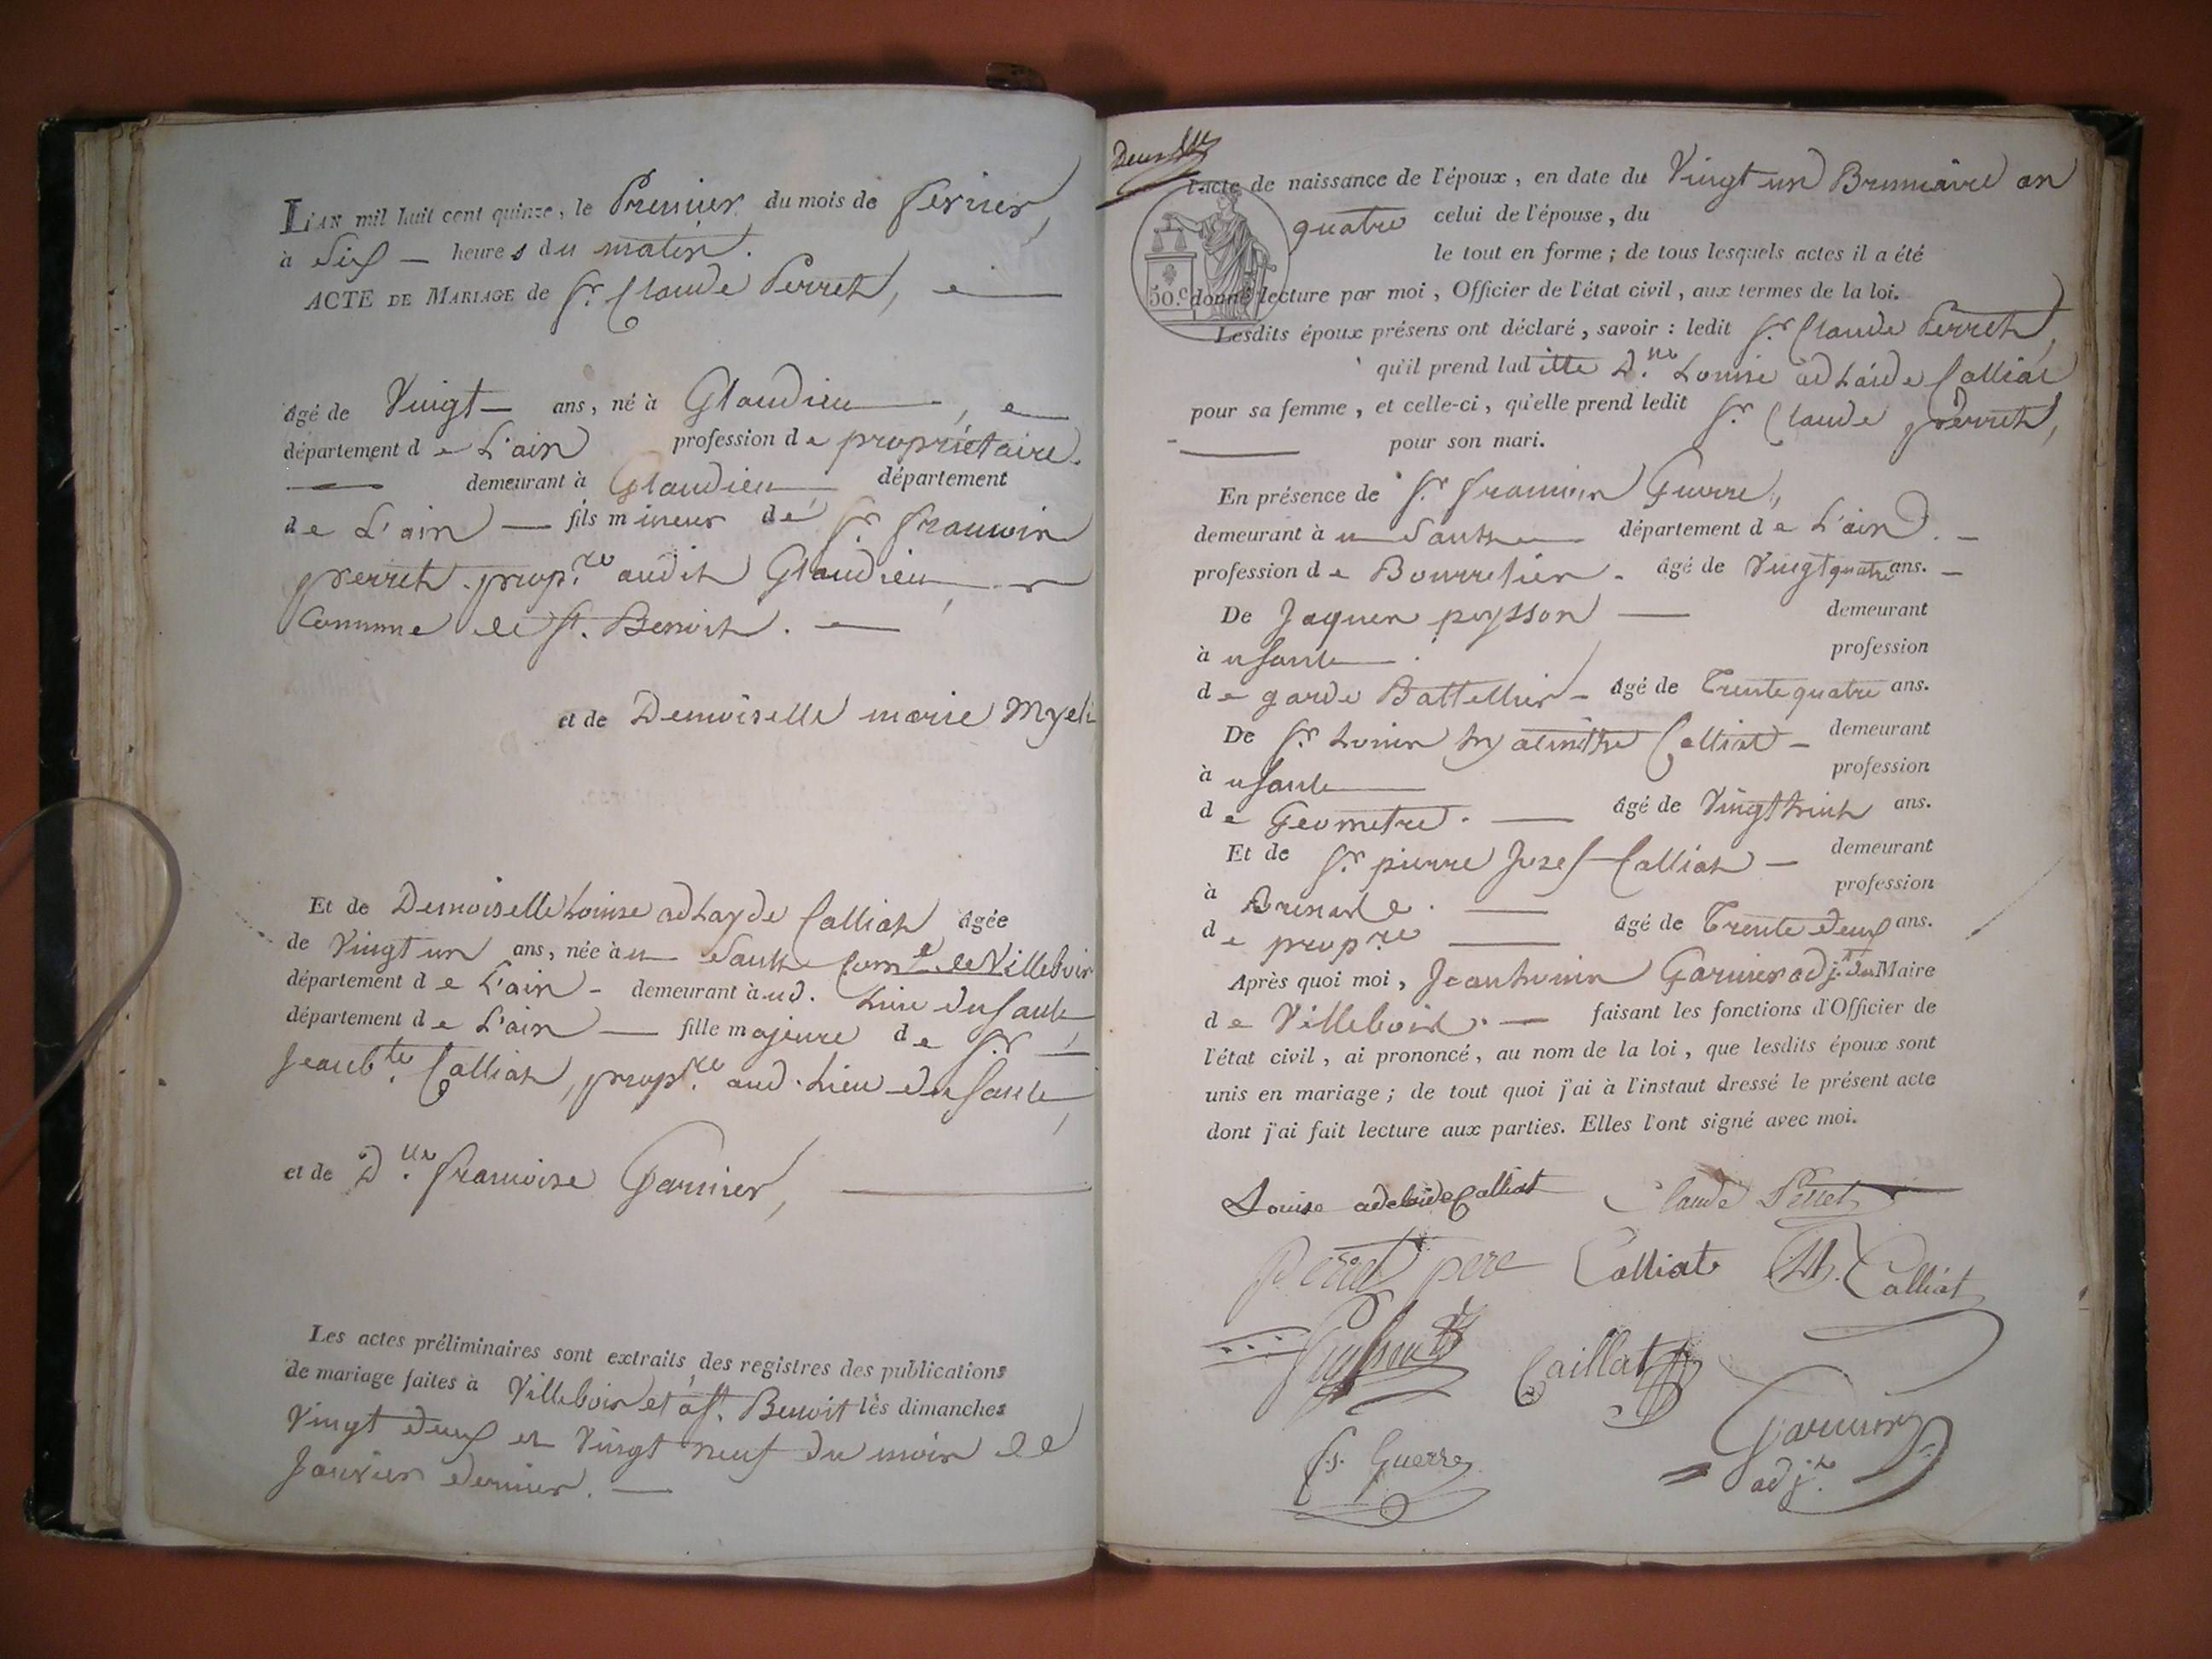 L'AN mil huit cent quinze, le Premier du mois de fevrier,
à Six — heures du matin.
ACTE DE MARIAGE de Sr. Claude Perret,
âgé de Vingt — ans, né à Glandieu
département de L'ain profession de propriétaire.
demeurant à Glandieu département
de L'ain — fils mineur de Sr. francois
perret propre. audit Glandieu
Commune de St. Benoit. —
et de Demoiselle marie Myeli
Et de Demoiselle Louise adLayde Calliat âgée
de Vingt un ans, née à Sault Come. de Villebois
département de L'ain - demeurant à ud. Lieu du Sault
département de L'ain — fille majeure de Sr.
Jean bte. Calliat, propre. aud. Lieu du Sault,
et de Dlle. francoise Garnier,
Les actes préliminaires sont extraits des registres des publications
de mariage faites à Villebois et à St. Benoit les dimanches
Vingt deux et Vingt neuf du mois de
Janvier dernier. —
l'acte de naissance de l'époux, en date du Vingt un Brumaire an
quatre celui de l'épouse, du
le tout en forme; de tous lesquels actes il a été
50.c donné lecture par moi, Officier de l'état civil, aux termes de la loi.
Lesdits époux présens ont déclaré, savoir: ledit Sr. Claude Perret,
qu'il prend laditte Dlle. Louise adLaïde Calliat
pour sa femme, et celle-ci, qu'elle prend ledit Sr. Claude perret,
pour son mari.
En présence de Sr. francois Guerre,
demeurant à u Sault département de L'ain. —
profession de Bourrelier. âgé de Vingt quatre ans. —
De Jaques poysson — demeurant
à u Sault profession
de garde Battellier - âgé de Trente quatre ans.
De Sr. Louis hyacinthe Calliat — demeurant
à u Sault profession
de Geometre. — âgé de Vingt huit ans.
Et de Sr. pierre Josef Calliat — demeurant
à profession
de propre — âgé de Trente deux ans.
Après quoi moi, Jean Louis Garnier adjt. du Maire
de Villebois. — faisant les fonctions d'Officier de
l'état civil, ai prononcé, au nom de la loi, que lesdits époux sont
unis en mariage; de tout quoi j'ai à l'instaut dressé le présent acte
dont j'ai fait lecture aux parties. Elles l'ont signé avec moi.
Louise adelaide Calliat Claude Perret
Perret pere Calliat M. Calliat
Caillat
fs. Guerre Garnier
adjt.